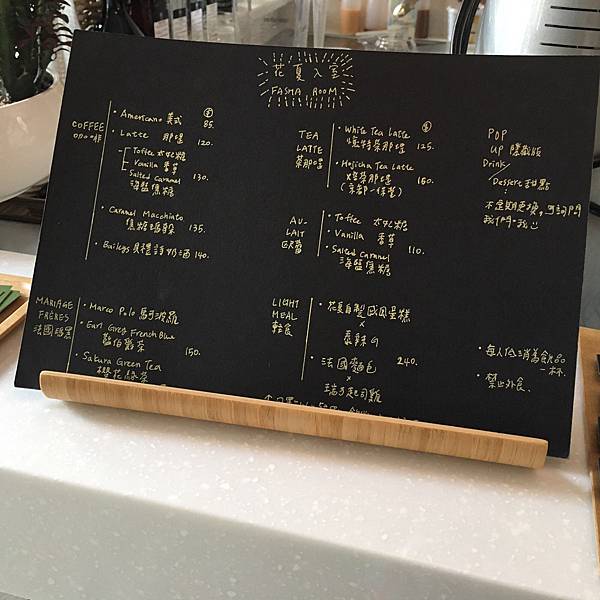 花夏入室
FASHA ROOM
COFFEE
咖啡
· Americano 美式 85.
· Latte 那堤 120.
Toffee 太妃糖
Vanilla 香草
Salted Caramel 130.
海鹽焦糖
· Caramel Macchiato
焦糖瑪朵 135.
· Baileys 貝禮詩奶酒 140.
TEA
LATTE
茶那堤
· White Tea Latte
125.
· Hojicha Tea Latte
焙茶那堤 150.
AU-
LAIT
歐蕾
· Toffee 太妃糖
· Vanilla 香草 110.
· Salted Caramel
海鹽焦糖
POP
UP 隱藏版
Drink/
Dessert 甜點
不定期更換,可詢問
我們~
MARIAGE
FRÈRES
法國瑪黑
· Marco Polo 馬可波羅
· Earl Grey French Blue
伯爵茶 150.
· Sakura Green Tea
櫻花綠茶
LIGHT
MEAL
輕食
· 花夏自製戚風蛋糕
x
· 法國麵包 240.
x
· 每人低消為飲品
一杯.
· 禁止外食.